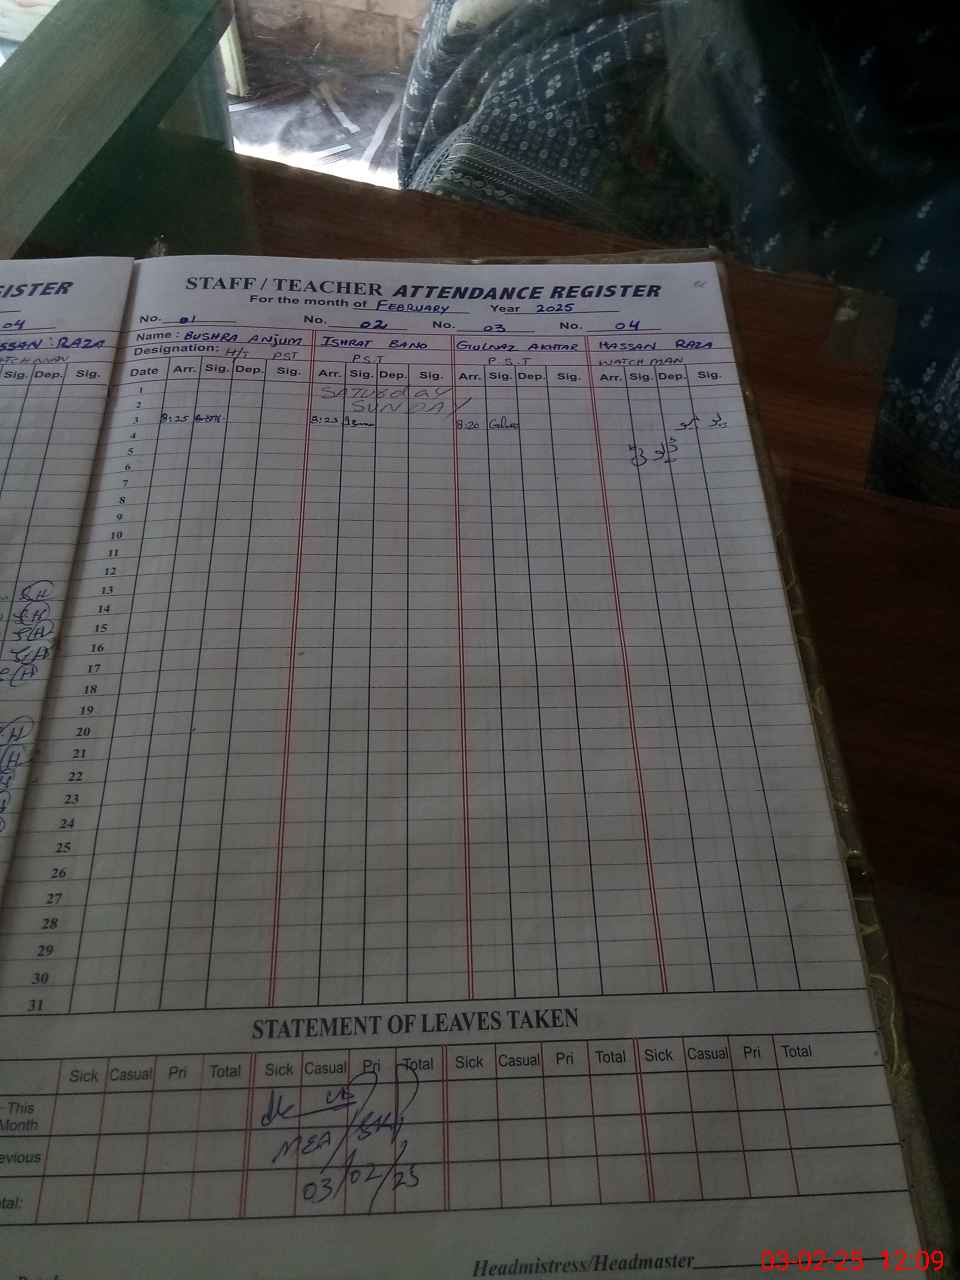 GISTER
04
SSAN RAZA
TCHMAN
Sig. Dep. Sig.
STAFF / TEACHER ATTENDANCE REGISTER
For the month of FEBRUARY Year 2025
No. 01 No. 02 No. 03 No. 04
Name : BUSHRA ANJUM ISHRAT BANO GULNAZ AKHTAR HASSAN RAZA
Designation: H/T PST P.S.T P.S.T WATCHMAN
Date Arr. Sig. Dep. Sig. Arr. Sig. Dep. Sig. Arr. Sig. Dep. Sig. Arr. Sig. Dep. Sig.
1 SATURDAY
2 SUNDAY
3 8:25 8:25 8:20
4
5
6
7
8
9
10
11
12
13
14
15
16
17
18
19
20
21
22
23
24
25
26
27
28
29
30
31
STATEMENT OF LEAVES TAKEN
Sick Casual Pri Total Sick Casual Pri Total Sick Casual Pri Total Sick Casual Pri Total
This
Month
evious
tal:
MEA
03/02/25
Headmistress/Headmaster
03-02-25 12:09